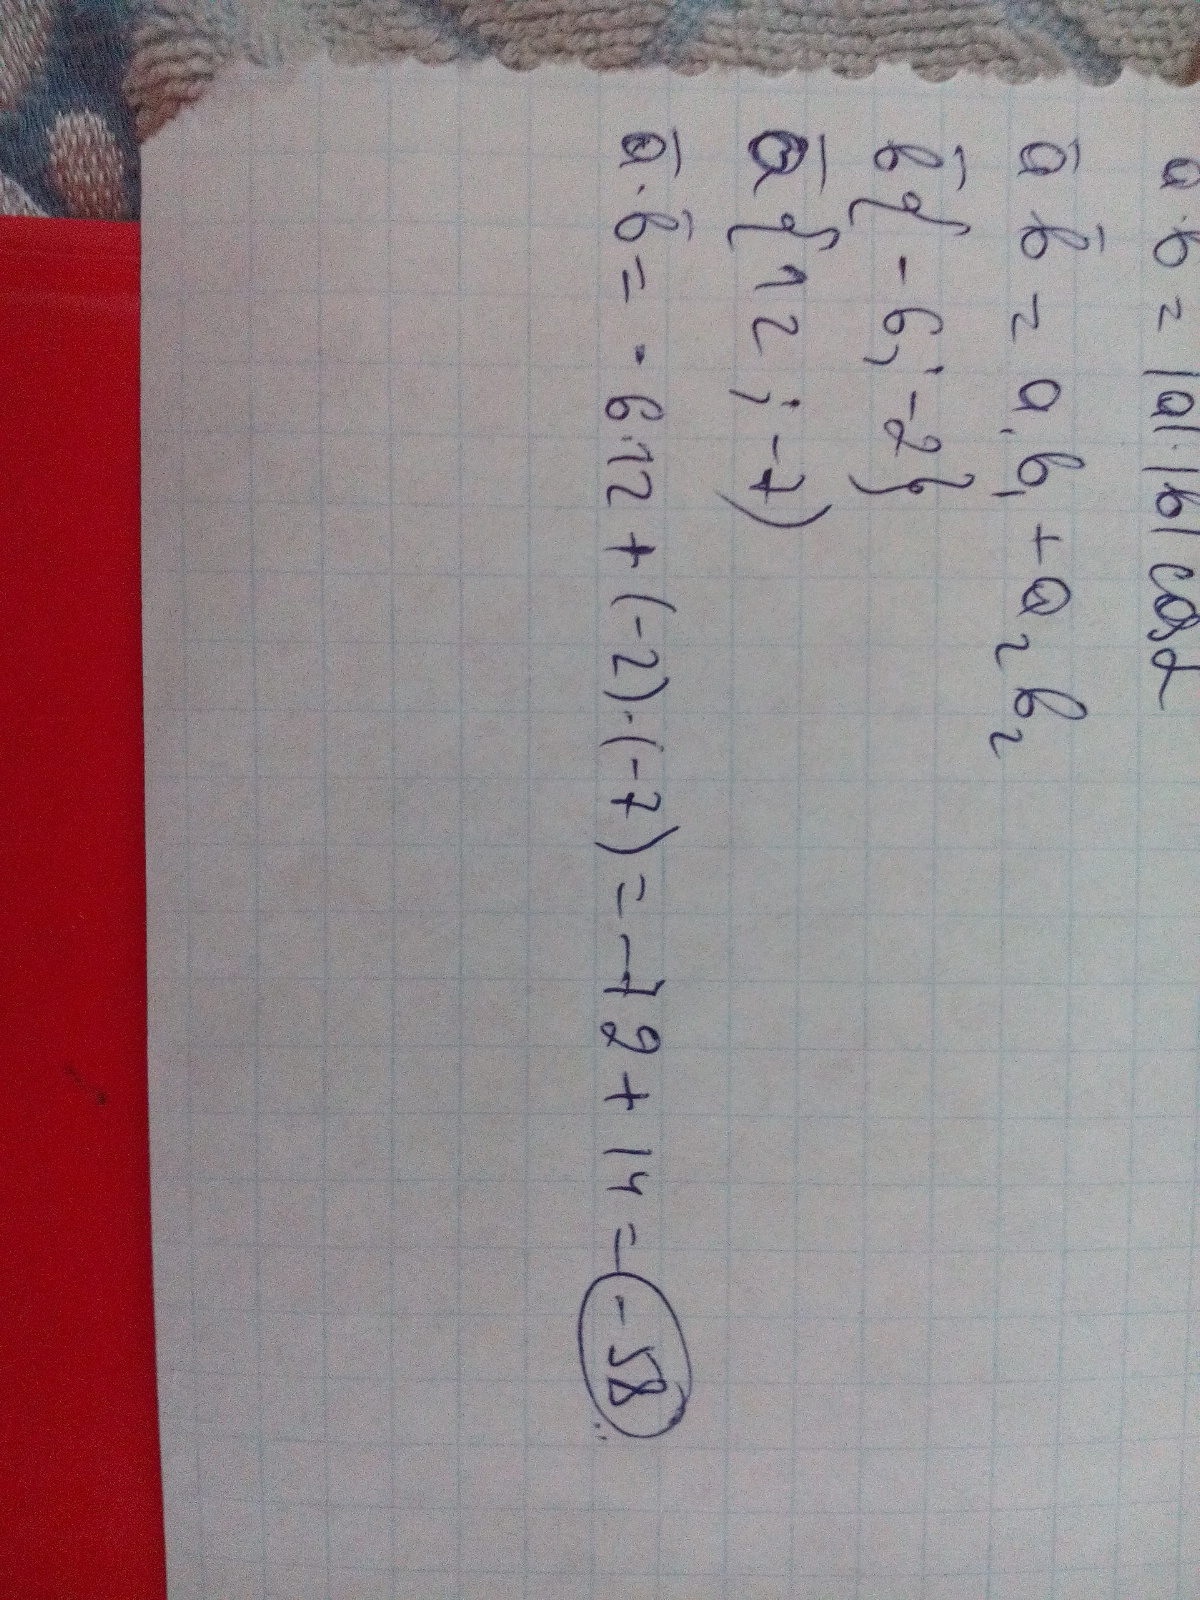 a · b = |a| · |b| cos α
a̅ b̅ = a₁b₁ + a₂b₂
b̅ { -6; -2}
a̅ {12 ; -7)
a̅ · b̅ = - 6·12 + (-2)·(-7) = -72 + 14 = -58